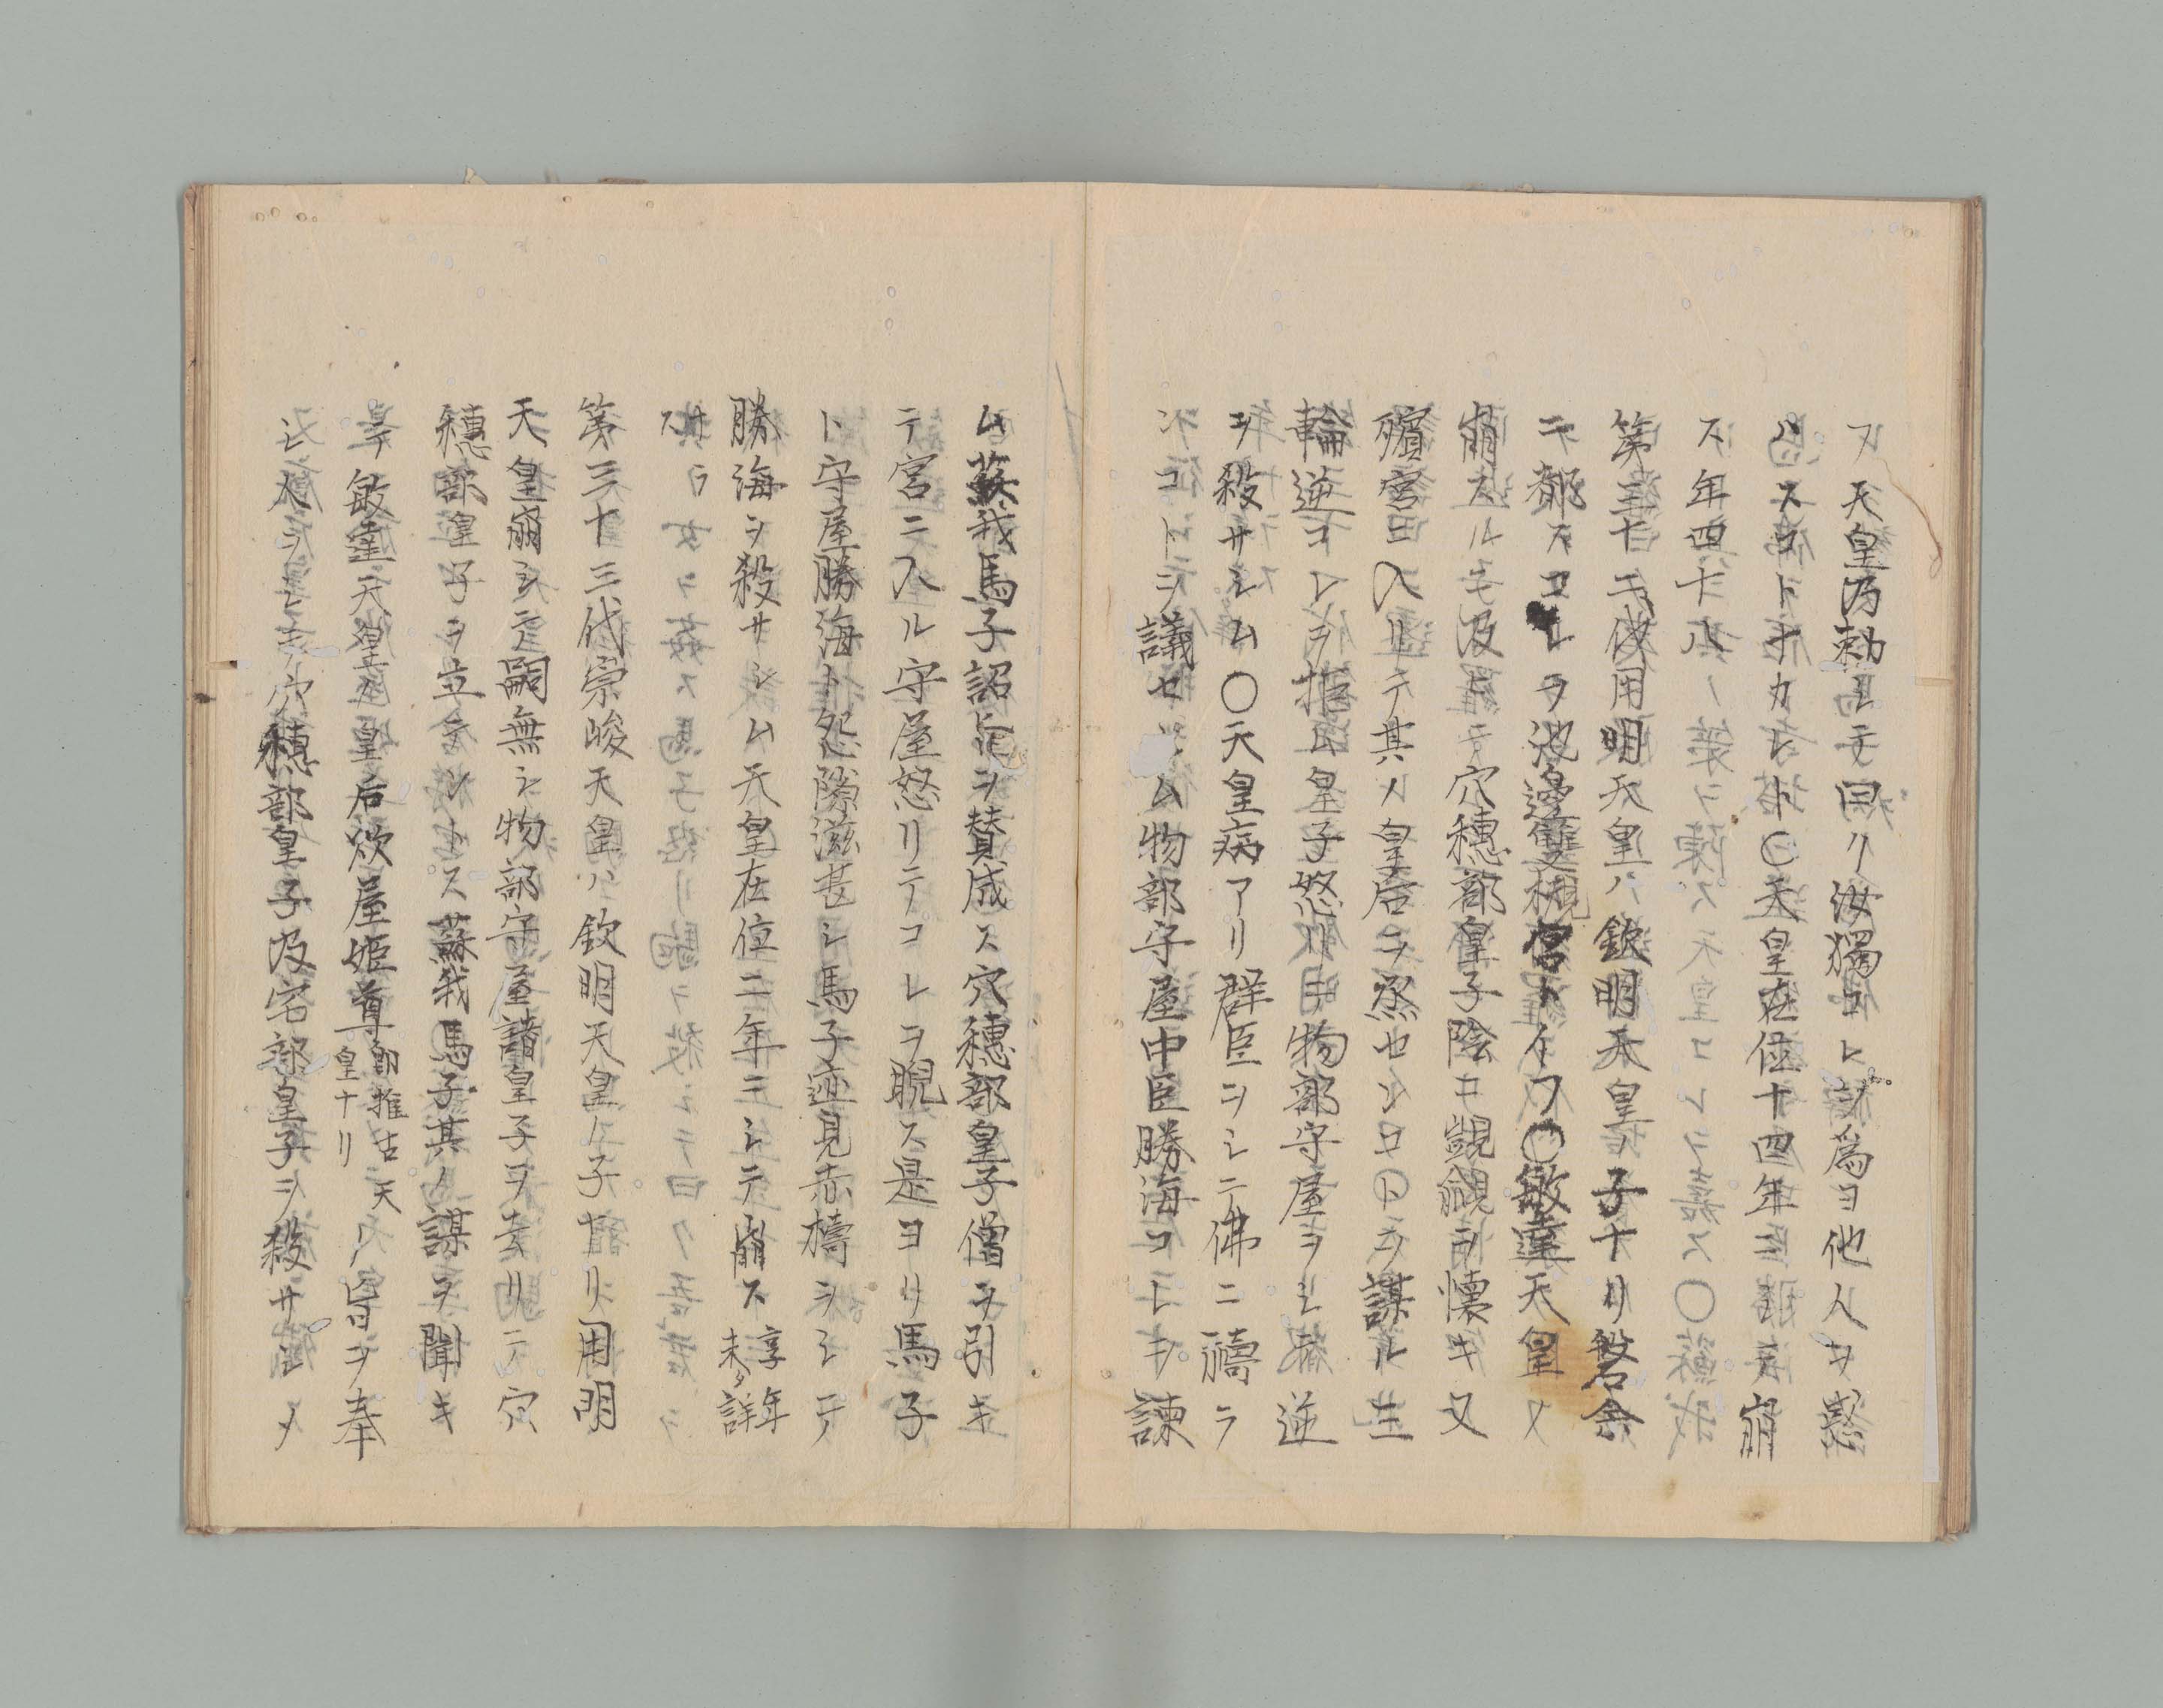 フ天皇乃勅シテ因リ汝獨コレヲ爲ヨ他人ヲ惑
ハスコトナカレト〇天皇在位十四年ニ崩
ス年四十八
第三十二代用明天皇ハ欽明天皇ノ子ナリ磐余
ニ都スコレヲ池邊雙槻宮トイフ〇敏達天皇ノ
崩スルニ及ヒテ穴穗部皇子陰ニ覬覦ヲ懷キ又
殯宮ニ入リテ其ノ皇后ヲ烝セシコトヲ謀ル三
輪逆コレヲ拒ム皇子怒リ物部守屋ヲシテ逆
ヲ殺サシム〇天皇病アリ群臣ヲシテ佛ニ禱ラ
ンコトヲ議セシム物部守屋中臣勝海コレヲ諫
ム蘇我馬子詔旨ヲ賛成ス穴穗部皇子僧ヲ引キ
テ宮ニ入ル守屋怒リテコレヲ睨ス是ヨリ馬子
ト守屋勝海ト怨隙滋甚シ馬子迹見赤檮ヲシテ
勝海ヲ殺サシム天皇在位二年ニシテ崩ス享年未タ詳
ナラス
第三十三代崇峻天皇ハ欽明天皇ノ子ナリ用明
天皇崩シテ嗣無シ物部守屋諸皇子ヲ去リテ穴
穗部皇子ヲ立ントス蘇我馬子其ノ謀ヲ聞キ
テ敏達天皇ノ皇后炊屋姫尊即推古天皇ナリ旨ヲ奉
シ人ヲシテ穴穗部皇子及宅部皇子ヲ殺サシメ